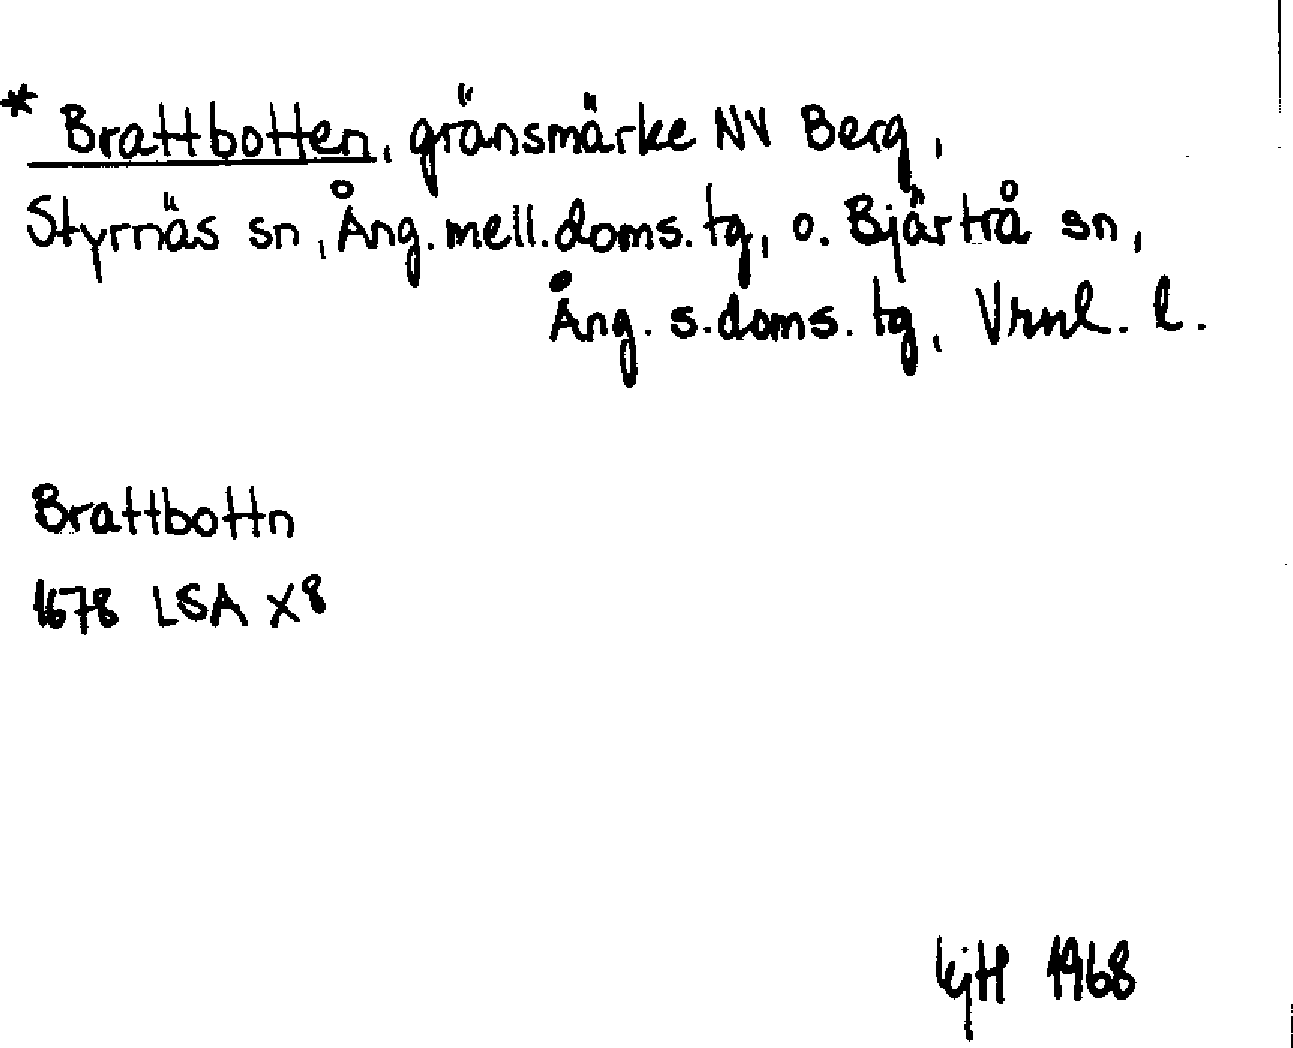 * Brattbotten, gränsmärke NV Berg,
Styrnäs sn, Ång. mell. doms. tg, o. Bjärtrå sn,
Ång. s. doms. tg, Vrnl. l.
Brattbottn
1678 LSA X8
1968